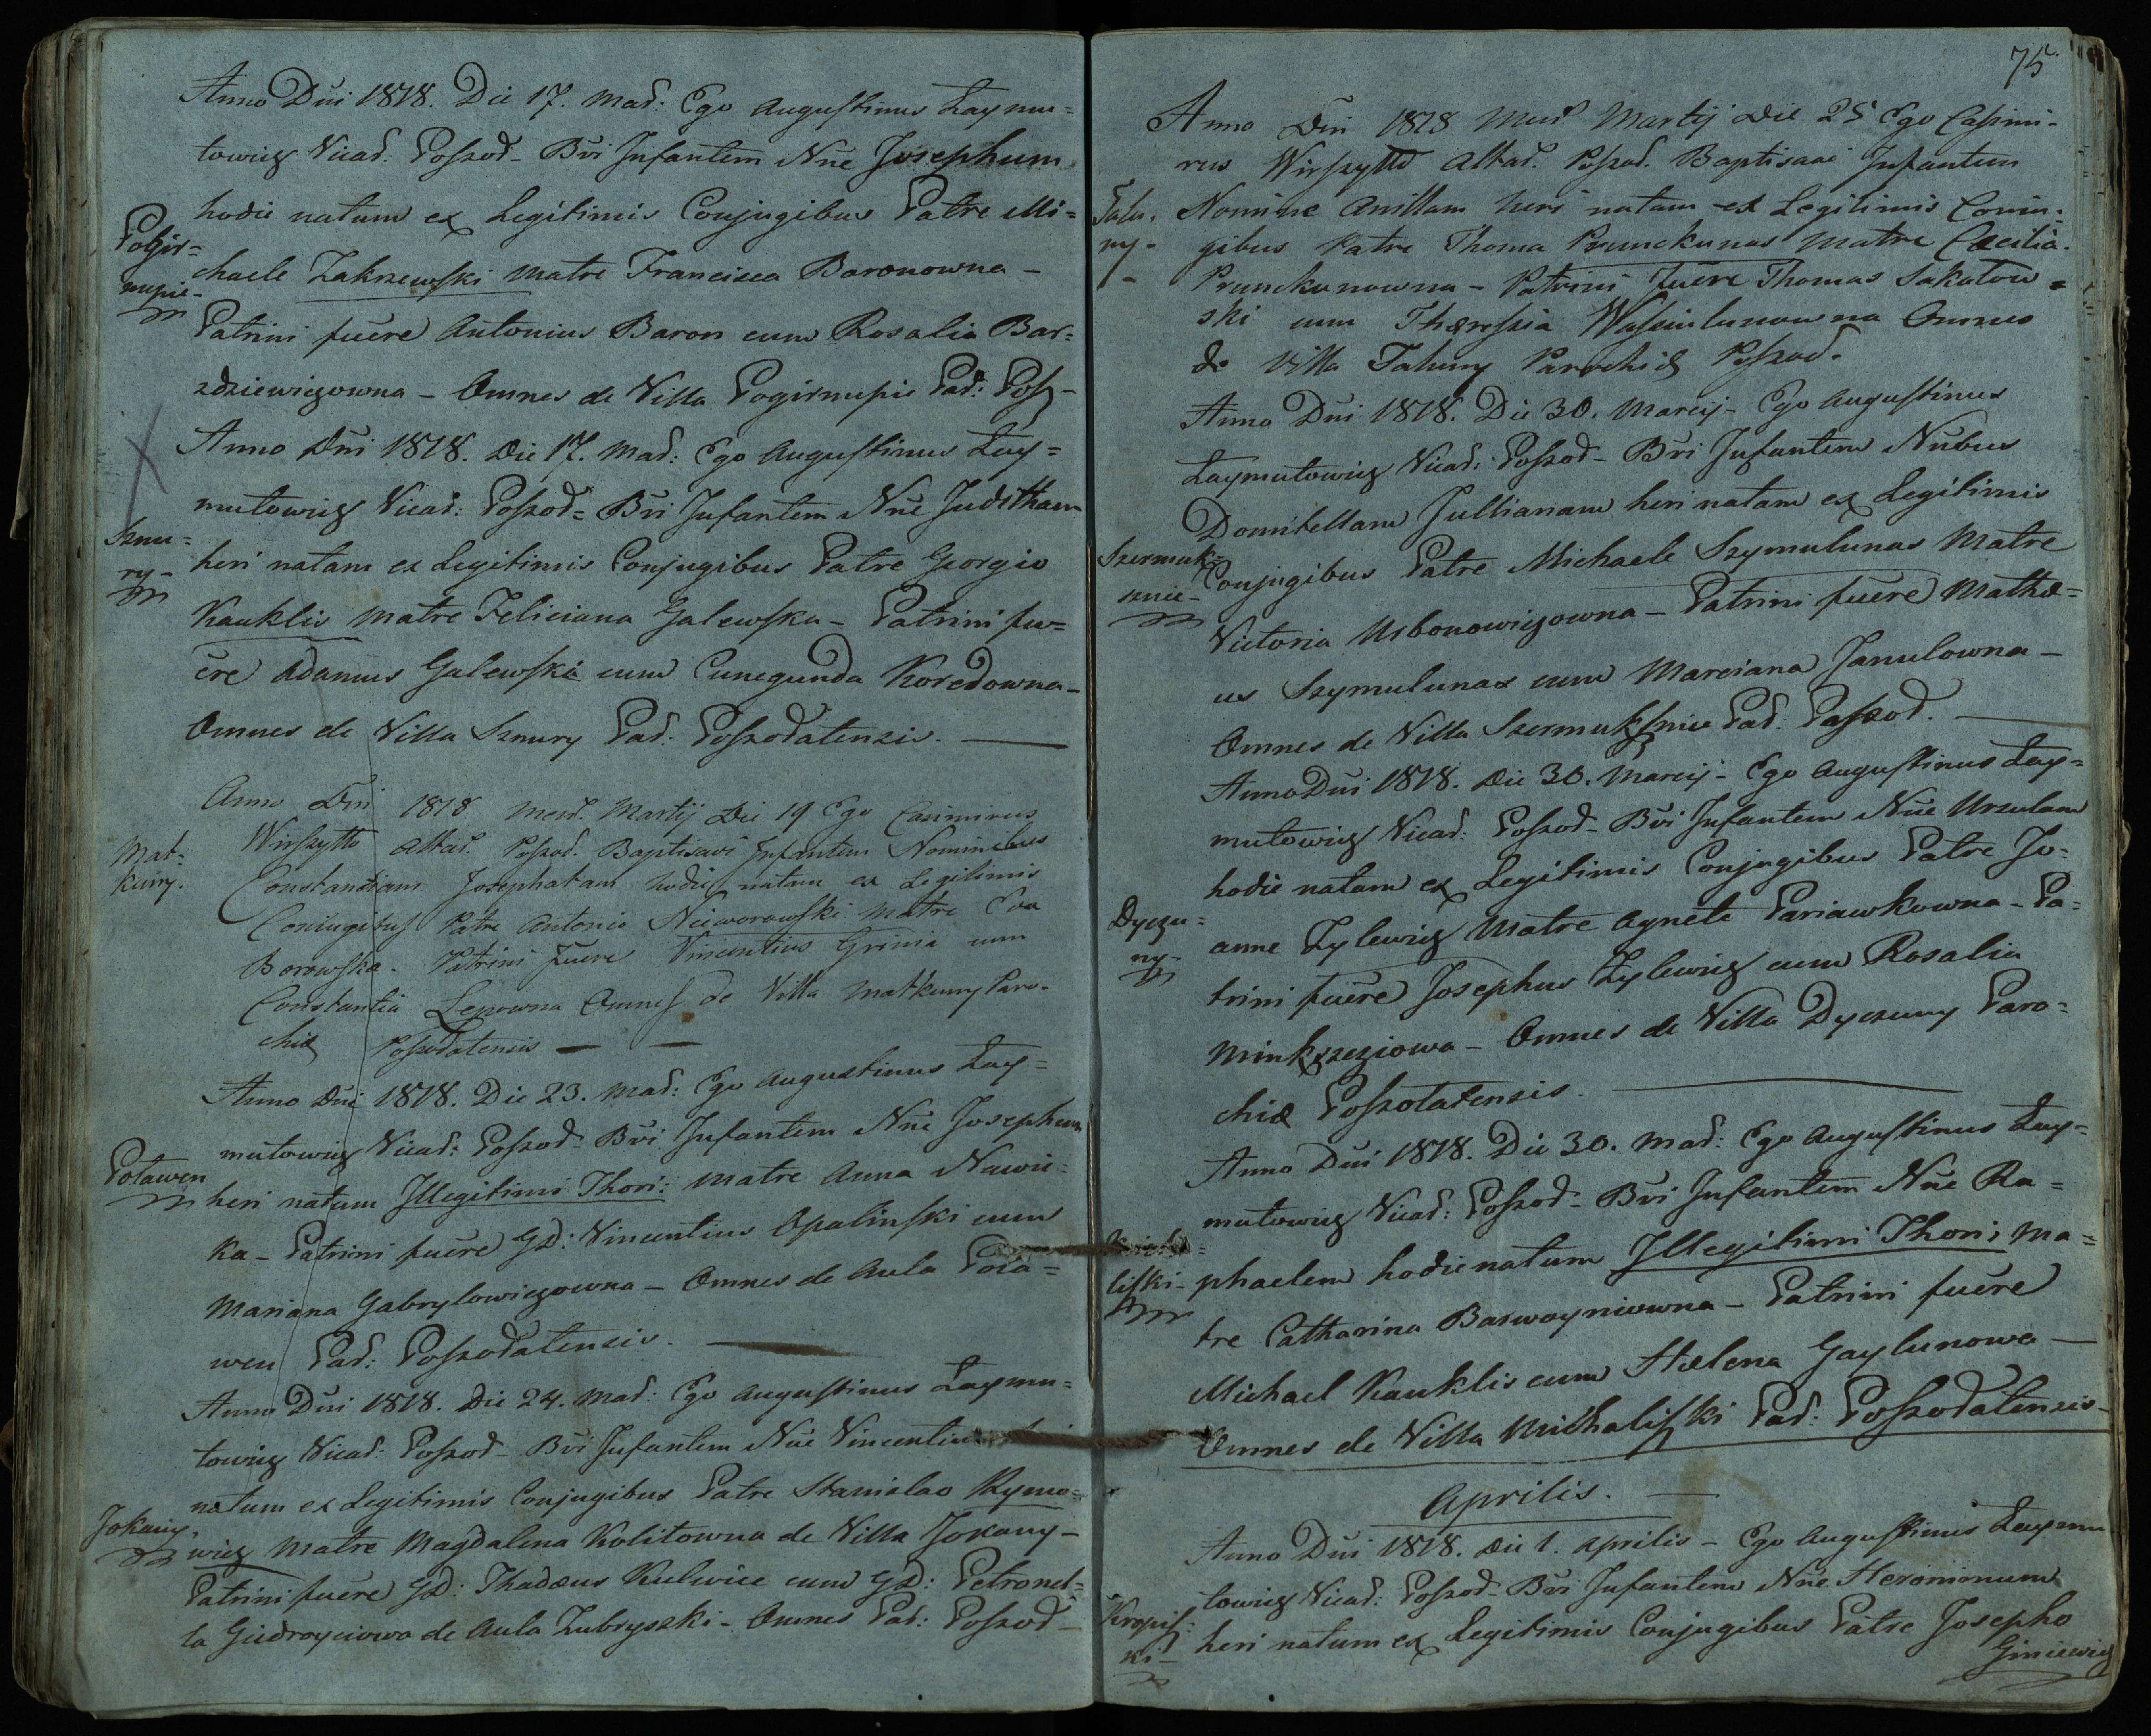 Anno Dni 1818. Die 17. Mar: Ego Augustinus Laymu=
towicz Vicar: Poszod- Bvi Infantem Nne Josephum
hodie natum ex Legitimis Conjugibus Patre Mi=
Pogir=
nupie-
chaele Zakrzewski Matre Francisca Baronowna -
Patrini fuere Antonius Baron cum Rosalia Bar=
zdziewiczowna - Omnes de Villa Pogirnupie Par: Posz-
Anno Dni 1818. Die 17. Mar: Ego Augustinus Lay=
mutowicz Vicar: Poszod= Bvi Infantem Nne Juditham
Sznu=
ry-
heri natam ex Legitimis Conjugibus Patre Georgio
Kauklis Matre Feliciana Galewska - Patrini fu=
ere Adamus Galewski cum Cunegunda Koredowna-
Omnes de Villa Sznury Par: Poszodatensis.
Anno Dni 1818 Mens. Martij Die 19 Ego Casimirus
Mat=
kuny.
Wirszytto Altar. Poszod. Baptisavi Infantem Nominibus
Constantiam Josephatam hodie natam ex Legitimis
Coniugibus Patre Antonio Nieworowski Matre Eva
Borowska. Patrini fuere Vincentius Grinia cum
Constantia Lepowna Omnes de Villa Matkuny Paro-
chiæ Poszodatensis
Anno Dni 1818. Die 23. Mar: Ego Augustinus Lay=
mutowicz Vicar: Poszod- Bvi Infantem Nne Josephum
Potawen
heri natum Illegitimi Thori: Matre Anna Nawic=
ka - Patrini fuere GD: Vincentius Opalinski cum
Mariana Gabrylowiczowna - Omnes de Aula Pota=
wen Par: Poszodatensis.
Anno Dni 1818. Die 24. Mar: Ego Augustinus Laymu=
towicz Vicar: Poszod- Bvi Infantem Nne Vincentium
natum ex Legitimis Conjugibus Patre Stanislao Rymo=
Jokany.
wicz Matre Magdalena Kolitowna de Villa Jokany-
Patrini fuere GD: Thadæus Kulwice cum GD: Petronel=
la Giedroyciowa de Aula Zubryszki - Omnes Par: Poszod-
75
Anno Dni 1818 Mens Martij Die 25 Ego Casimi-
rus Wirszytto Altar. Poszod. Baptisavi Infantem
Talu.
ny-
Nomine Anillam heri natam ex Legitimis Coniu:
gibus Patre Thoma Prunckunas Matre Cæcilia
Prunckunowna - Patrini fuere Thomas Sakatow=
ski cum Theressia Wassiulunowna Omnes
de Villa Taluny Parochiæ Poszod.
Anno Dni 1818. Die 30. Marcij- Ego Augustinus
Laymutowicz Vicar: Poszod- Bvi Infantem Nnbus
Domitellam Jullianam heri natam ex Legitimis
Szermuk=
sznie-
Conjugibus Patre Michaele Szymulunas Matre
Victoria Urbonowiczowna - Patrini fuere Mathæ=
us Szymulunas cum Marciana Janulowna -
Omnes de Villa Szermuksznie Par: Poszod.
Anno Dni 1818. Die 30. Marcij- Ego Augustinus Lay=
mutowicz Vicar: Poszod- Bvi Infantem Nne Ursulam
hodie natam ex Legitimis Conjugibus Patre Jo=
Dyczu=
ny-
anne Zylewicz Matre Agneta Pariawkowna - Pa=
trini fuere Josephus Zylewicz cum Rosalia
Minkszeziowa - Omnes de Villa Dyczuny Paro=
chiæ Poszotatensis.
Anno Dni 1818. Die 30. Mar: Ego Augustinus Lay=
mutowicz Vicar: Poszod- Bvi Infantem Nne Ra=
liszki-
phaelem hodie natum Illegitimi Thori; Ma=
tre Catharina Barwoyniowna - Patrini fuere
Michael Kauklis cum Helena Gaylunowa -
Omnes de Villa Michaliszki Par: Poszodatensis-
Aprilis.
Anno Dni 1818. Die 1. Aprilis - Ego Augustinus Laymu
towicz Vicar: Poszod- Bvi Infantem Nne Heronimum
Kropisz=
ki-
heri natum ex Legitimis Conjugibus Patre Josepho
Giniewicz